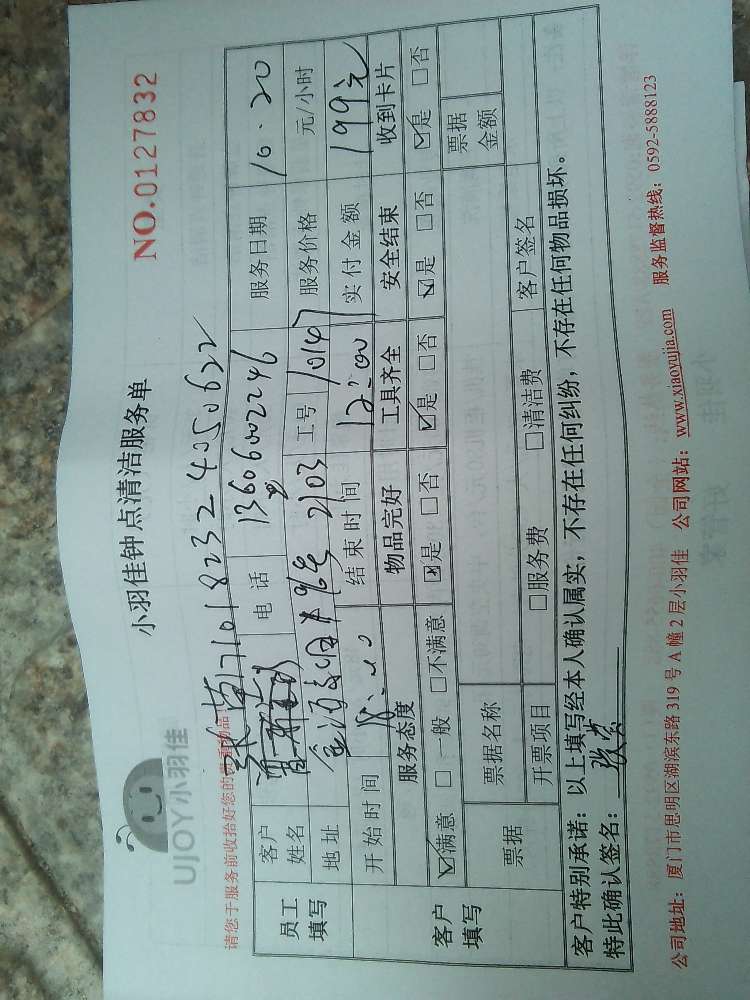 UJOY小羽佳
小羽佳钟点清洁服务单
NO.0127832
请您于服务前收拾好您的贵重物品
71018232 4050622
员工填写
客户姓名
电话 13606002246
服务日期 10.20
地址 2103
工号 10147
服务价格 元/小时
开始时间 8:00
结束时间 12:00
实付金额 199元
客户填写
服务态度 物品完好 工具齐全 安全结束 收到卡片
☑满意 □一般 □不满意 ☑是 □否 ☑是 □否 ☑是 □否 ☑是 □否
票据 票据名称 票据金额
开票项目 □服务费 □清洁费 客户签名
客户特别承诺：以上填写经本人确认属实，不存在任何纠纷，不存在任何物品损坏。
特此确认签名：
公司地址：厦门市思明区湖滨东路319号A幢2层小羽佳 公司网站：www.xiaoyujia.com 服务监督热线：0592-5888123